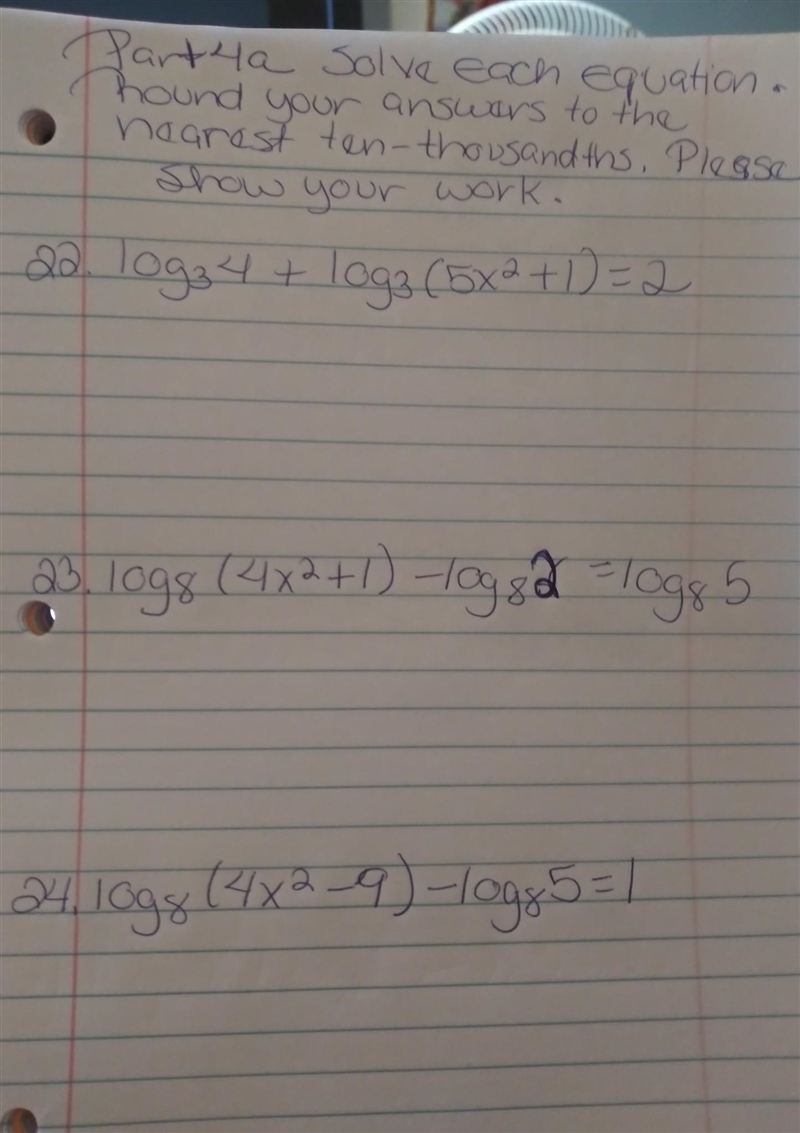 Part 4a Solve each equation.
Round your answers to the
nearest ten-thousandths. Please
show your work.
22. log₃4 + log₃(5x²+1)=2
23. log₈(4x²+1) -log₈2 =log₈5
24. log₈(4x²-9)-log₈5=1